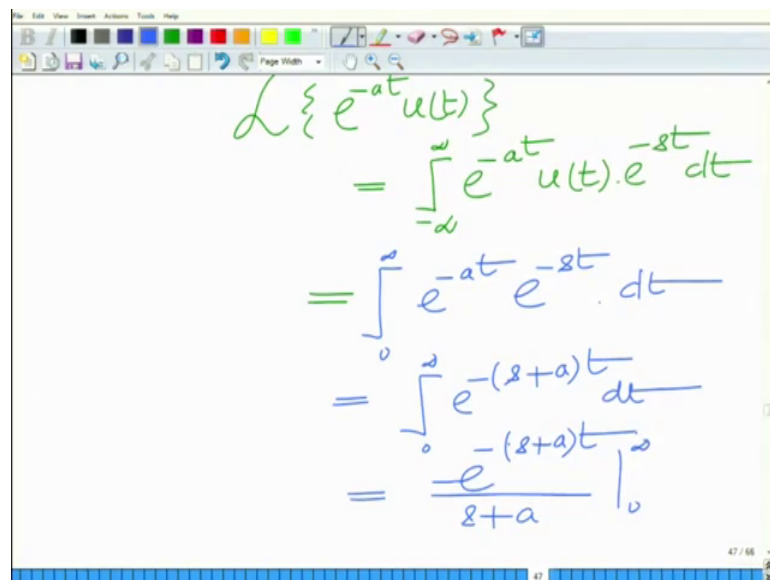 File Edit View Insert Actions Tools Help
B I
Page Width
ℒ{e^{-at} u(t)}
= ∫_{-∞}^{∞} e^{-at} u(t) . e^{-st} dt
= ∫_{0}^{∞} e^{-at} e^{-st} . dt
= ∫_{0}^{∞} e^{-(s+a)t} dt
= -e^{-(s+a)t} / s+a |_{0}^{∞}
47 / 66
47